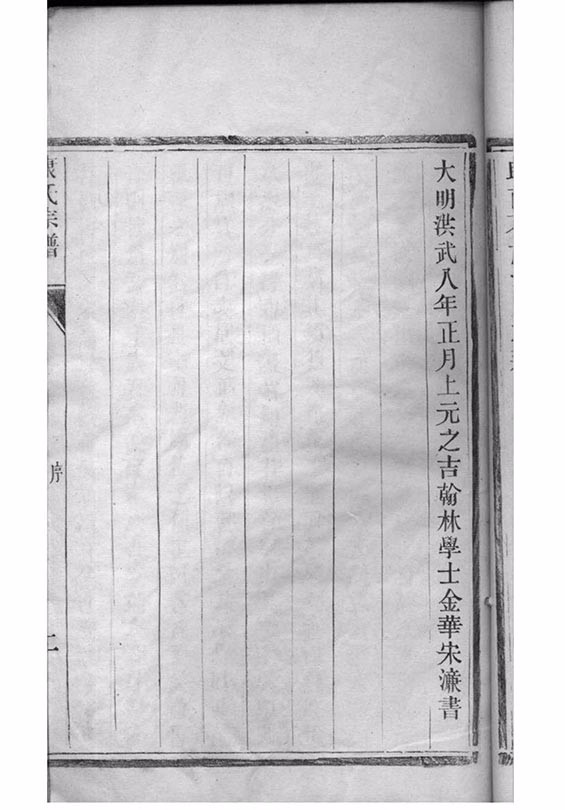 大明洪武八年正月上元之吉翰林學士金華宋濂書
氏宗譜
序
二